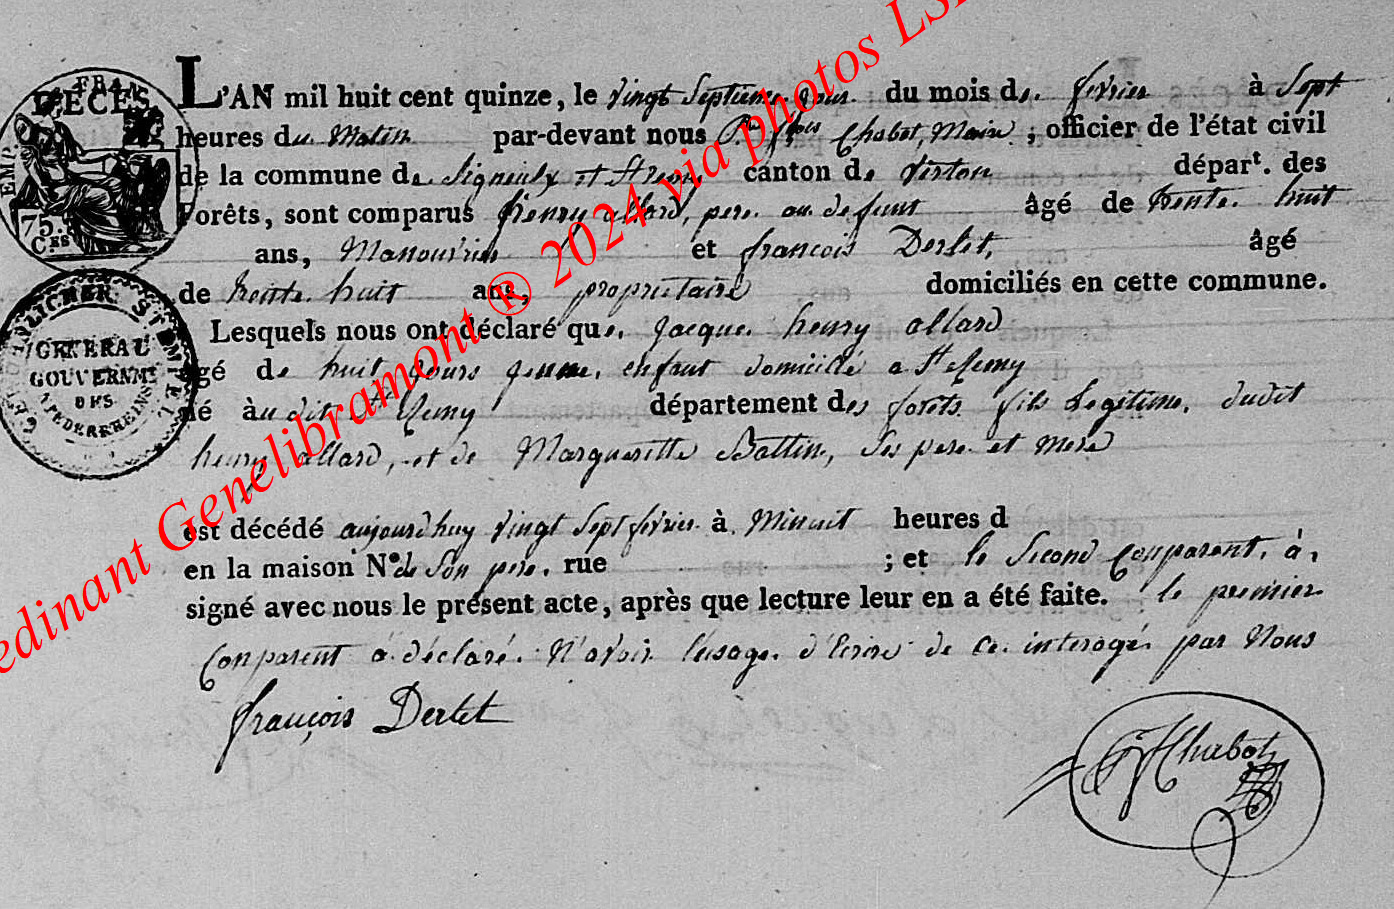 DÉCÈS.
FRAN
EMP.
75.
C.ES
L'AN mil huit cent quinze, le vingt Septieme jour du mois de fevrier à Sept
heures du Matin par-devant nous Chabot, Maire, officier de l'état civil
de la commune de Signeulx et St Remy canton de Virton départ. des
Forêts, sont comparus henry allard, pere au defunt âgé de trente huit
ans, Manouvrier et françois Derlet, âgé
de trente huit ans, propriétaire domiciliés en cette commune.
Lesquels nous ont déclaré que Jacque henry allard
âgé de huit jours jeune enfant domicillé a St Remy
né àu dit St Remy département des forets fils Legitime dudit
henry allard, et de Margueritte Battin, Ses pere et mere
est décédé aujourdhuy vingt Sept fevrier à Minuit heures d
en la maison N° de Son pere. rue ; et le Second Conparent à
signé avec nous le présent acte, après que lecture leur en a été faite. le premier
Conparent à déclaré N'avoir l'usage d'Ecrire de ce interogé par Nous
françois Derlet
Chabot
STEMPEL
GENERAL
GOUVERNMT
DES
Fedinant Genelibramont ® 2024 via photos LSD